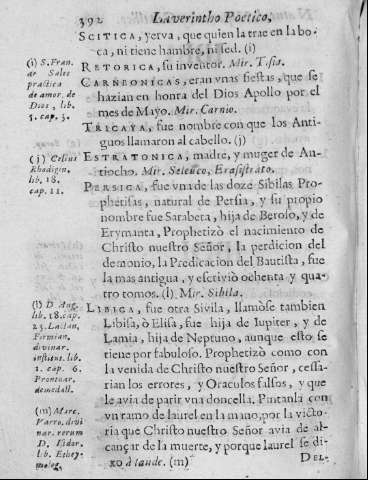 392 Laverintho Poetico,
SCITICA, yerva, que quien la trae en la bo-
ca, ni tiene hambre, ni sed. (i)
RETORICA, su inventor. Mir. Tisia.
CARNEONICAS, eran vnas fiestas, que se
hazian en honra del Dios Apollo por el
mes de Mayo. Mir. Carnio.
TRICAYA, fue nombre con que los Anti-
guos llamaron al cabello. (j)
ESTRATONICA, madre, y muger de An-
tiocho. Mir. Seleuco, Erasistrato.
PERSICA, fue vna de las doze Sibilas Pro-
phetisas, natural de Persia, y su propio
nombre fue Sarabeta, hija de Beroso, y de
Erymanta, Prophetizò el nacimiento de
Christo nuestro Señor, la perdicion del
demonio, la Predicacion del Bautista, fue
la mas antigua, y escrivió ochenta y qua-
tro tomos. (l) Mir. Sibila.
LIBICA, fue otra Sivila, llamòse tambien
Libisa, ò Elisa, fue hija de Iupiter, y de
Lamia, hija de Neptuno, aunque esto se
tiene por fabuloso. Prophetizò como con
la venida de Christo nuestro Señor, cessa-
rian los errores, y Oraculos falsos, y que
le avia de parir vna doncella. Pintanla con
vn ramo de laurel en la mano, por la victo-
ria que Christo nuestro Señor avia de al-
cançar de la muerte, y porque laurel se di-
xo à laude. (m)
DEL-
(i) S. Fran.
de Sales
practica
de amor. de
Dios, lib.
3. cap. 3.
(j) Celius
Rhodigin.
lib. 18.
cap. 11.
(l) D. Aug.
lib. 18. cap.
23. Lactan.
Firmian.
divinar.
institut. lib.
1. cap. 6.
Prontuar.
de medall.
(m) Marc.
Varro. divi
nar. rerum
D. Isidor.
lib. Ethey-
molog.